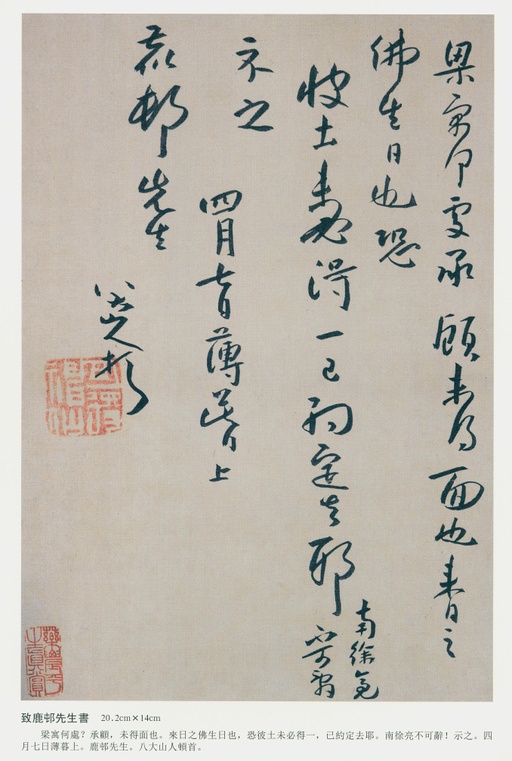 梁寓何處承顧未得面也来日之
佛生日也恐
彼土未必得一已約定去耶
南徐亮
示之
四月七日薄暮上
鹿邨先生
八大山人頓首
致鹿邨先生書 20.2cm×14cm
梁寓何處？承顧，未得面也。來日之佛生日也，恐彼土未必得一，已約定去耶。南徐亮不可辭！示之。四
月七日薄暮上。鹿邨先生。八大山人頓首。